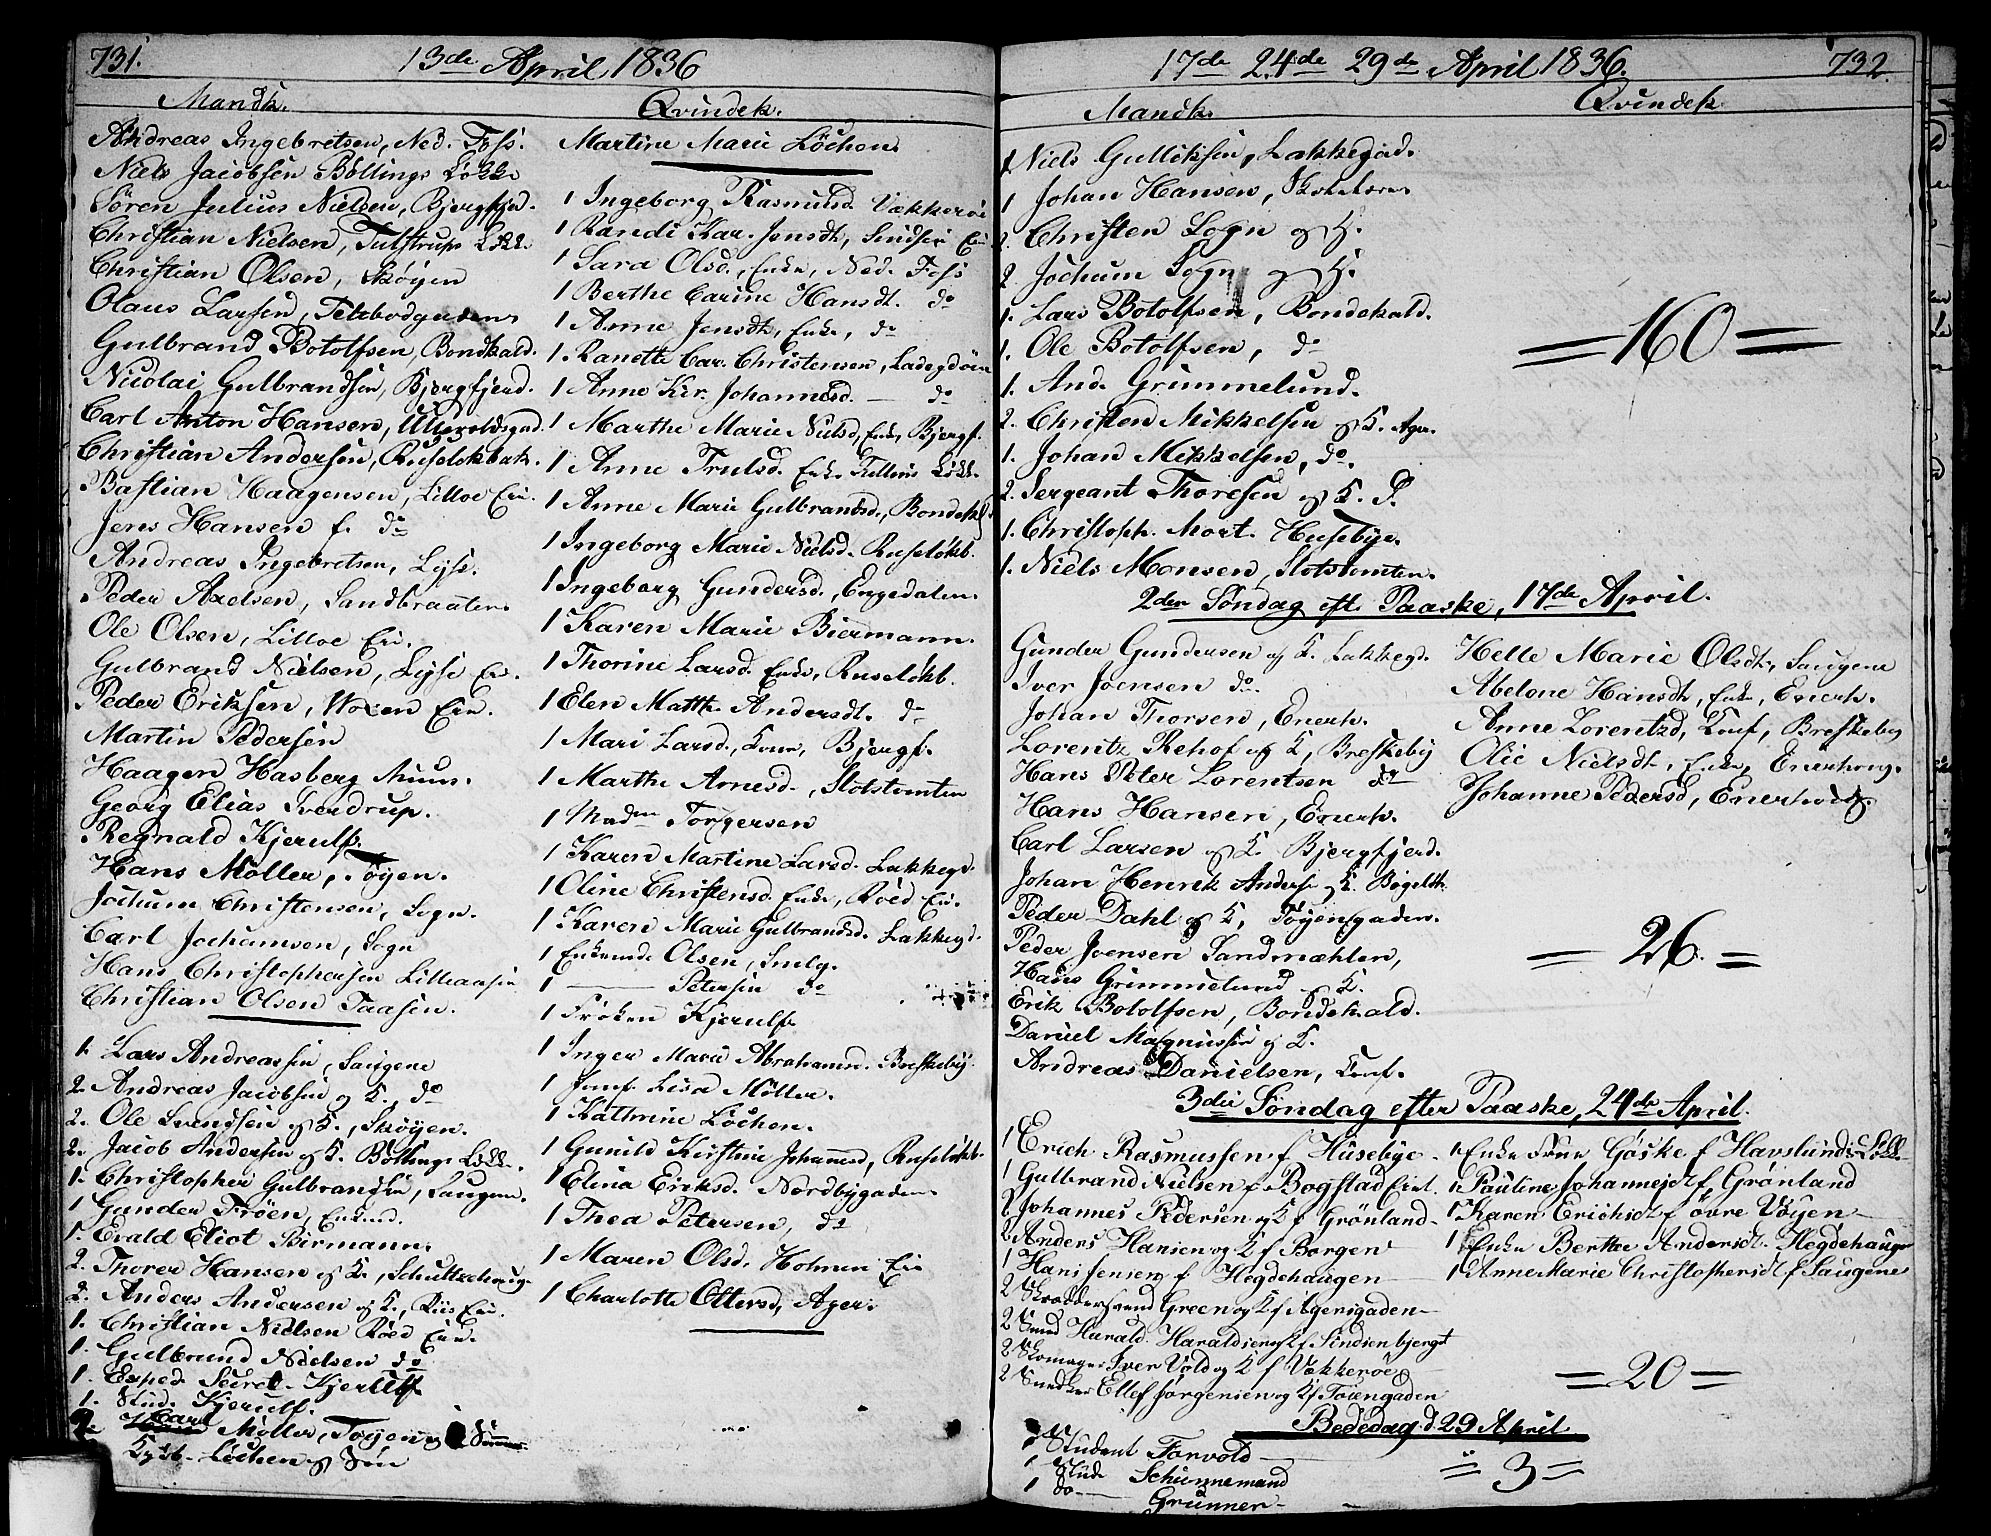 731.
13de April 1836
Mandk.
Andreas Ingebretsen, Ned. Foss.
Niels Jacobsen Böllings Løkke
Sören Julius Nielsen, Bjergfjed.
Christian Nielsen, Tulstrups Løkk.
Christian Olsen, Skøyen
Olaus Larsen,
Gulbrand Botolfsen, Bondkald.
Nicolai Gulbrandsen, Bjergfjerd.
Carl Anton Hansen, Ullevoldsgad.
Christian Andersen, Ruseløkbak.
Bastian Haagensen, Lilloe Eie.
Jens Hansen f. do
Andreas Ingebretsen, Lyse.
Peder Axelsen, Sandbraaten.
Ole Olsen, Lilloe Eie.
Gulbrand Nielsen, Lyse Eie.
Peder Eriksen, Woxen Eie.
Martin Pedersen
Haagen Hasberg
Georg Elias Sverdrup.
Regnald Kjerulf.
Hans Möller, Töyen.
Jochum Christensen, Sogn.
Carl Jochumsen, Sogn
Hans Christophersen Lilleaasen
Christian Olsen Taasen.
1. Lars Andreassen, Saugene
2. Andreas Jacobsen og K. do
2. Ole Svendsen og K., Skøyen.
2. Jacob Andersen og K. Bölling Løkk.
1. Christopher Gulbrandsen, Saugene.
1 Gunder Fröen, Enkemd.
1. Evald Eliot Birmann.
2. Thorer Hansen og K., Schultzehaug.
2. Anders Andersen og K., Riis Eie.
1. Christian Nielsen Röed Eie.
1. Gulbrand Nielsen do
1. Exped. Secret. Kjerulf
1. Stud. Kjerulf.
2. Carl Möller, Töyen og
Löchen og Sön
Qvindek.
Martine Marie Löchen
1 Ingeborg Rasmusd. Vækkerøe
1 Randi Kar. Jensdt, Sindsen Eie
1 Sara Olsd., Enke, Ned. Foss
1 Berthe Carine Hansdt. do
1 Anne Jensdt, Enke, do
1. Ranette Car. Christensen, Ladegdöen
1 Anne Kir. Johannesd. — do
1 Marthe Marie Nielsd, Enke, Bjergf.
1 Anne Trulsd. Enke Løkk.
1 Anne Marie Gulbrandsd., Bondekld
1 Ingeborg Marie Nielsd. Ruseløkb.
1 Ingeborg Gundersd., Engedalen.
1 Karen Marie Biermann.
1 Thorine Larsd. Enke, Ruseløkb.
1 Elen Math. Andersdt. do
1 Mari Larsd., Kone, Bjergf.
1 Marthe Arnesd., Slotstomten
1 Madme Torgersen
1 Karen Martine Larsd. Lakkegd.
1 Oline Christensd. Enke, Röed Eie.
1 Karen Marie Gulbrandsd. Lakkegd.
1 Enkemde Olsen,
1 — Petersen do
1 Fröken Kjerulf
1 Inger Marie Abrahamsd. Breskeby.
1 Jomf. Lisa Möller.
1 Kathrine Löchen.
1 Gunild Kirstine Johannesd, Ruseløkb.
1 Elina Eriksd. Nordbygaden
1 Thea Petersen, do
1 Maren Olsd. Holmen Eie
1 Charlotte Ottersd, Ager.
17de 24de 29de April 1836.
732.
Mandk.
Qvindek
1 Niels Gulliksen, Lakkegad.
1 Johan Hansen,
2. Christen Sogn og H.
2 Jochum Sogn og H.
1. Lars Botolfsen, Bondekald.
1. Ole Botolfsen, do
1. And. Grimmelund.
2. Christen Mikkelsen og K. Ager.
1. Johan Mikkelsen, do.
2. Sergeant Thoresen og K.
1. Christoph. Mort. Husebye.
1. Niels Monsen, Slotstomten.
= 160 =
2den Söndag eft. Paaske, 17de April.
Gunder Gundersen og K. Lakkegd.
Iver Joensen do.
Johan Thorsen, Enerh.
Lorentz Rehof og K, Breskeby
Hans Peter Lorentsen do
Hans Hansen, Enerh.
Carl Larsen og K. Bjergfjerd.
Johan Henrik Anders og K.
Peder Dahl og K, Töyengaden.
Peder Joensen Sandmæhlen,
Hans Grimmelund og K.
Erik Botolfsen, Bondekald.
Daniel Magnussen og K.
Andreas Danielsen, Conf.
Helle Marie Olsdt, Saugene
Abelone Hansdt, Enke, Enerh.
Anne Lorentzd, Conf, Breskeby
Olie Nielsdt, Enke, Enerhaug.
Johanne Pedersd, Enerhoug.
= 26. =
3die Söndag efter Paaske, 24de April.
1 Erich Rasmussen f Husebye
1 Gulbrand Nielsen f Bogstad Eiet.
2 Johannes Pedersen og K f Grönland
2 Anders Hansen og K f Borgen
1 Hans Jensen f Hegdehaugen
2 Skræddersvend Green og K f Agersgaden
2 Smed Harald Haraldsen og K f Sindsen bjerget
2 Skomager Iver Vold og K f Vekkeröe
2 Snedker Ellef Jörgensen og K f Töiengaden
1. Enke Frue Göske f Havslunds Løkk
1. Pauline Johannesdt f Grønland
1 Karen Erichsdt f övre Vöyen
1 Enke Berthe Andersdt. Hegdehaug
1 Anne Marie Christophersdt f Saugene
= 20 =
Bededag d. 29 April
1 Student Torvold
1 Stud Schunnemand
1 do — Grunner
= 3 =